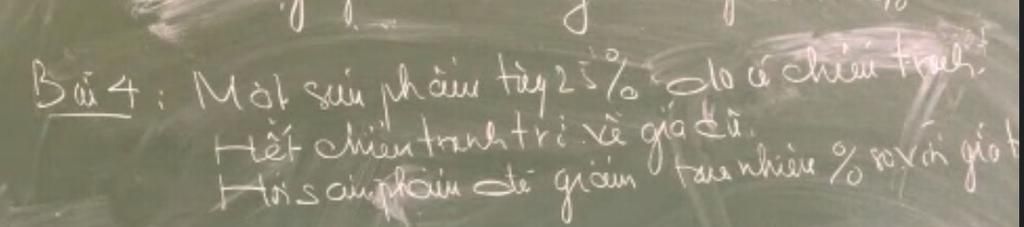 Bài 4: Một sản phẩm tăng 25% do có chiến tranh.
Hết chiến tranh trở về giá cũ.
Hỏi sản phẩm đó giảm bao nhiêu % so với giá